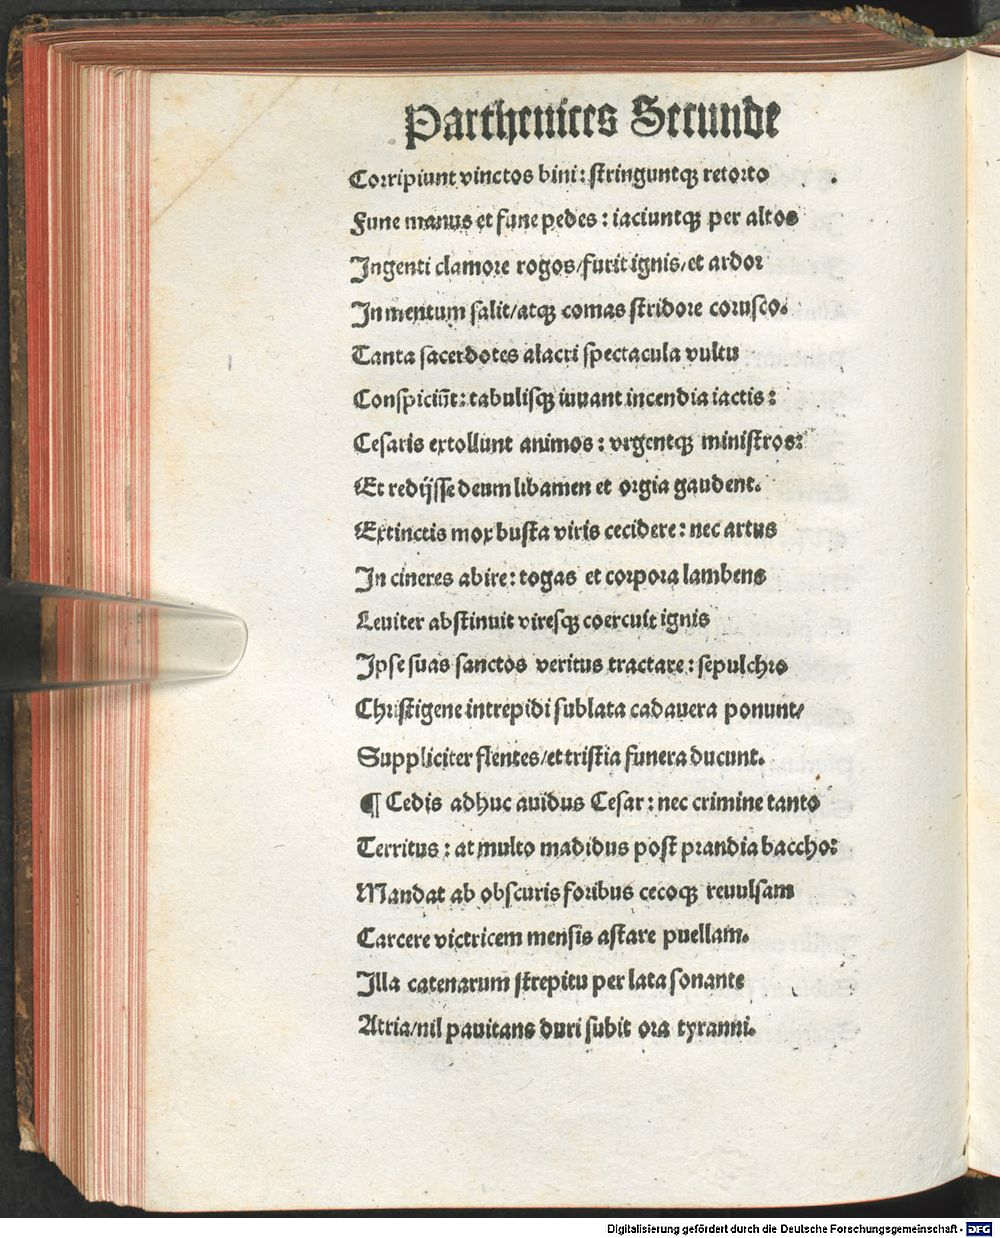 Parthenices Secunde
Corripiunt vinctos bini: stringuntqꝫ retorto
Fune manus et fune pedes: iaciuntqꝫ per altos
Ingenti clamore rogos/furit ignis/et ardor
In mentum salit/atqꝫ comas stridore corusco.
Tanta sacerdotes alacri spectacula vultu
Conspiciūt: tabulisqꝫ iuuant incendia iactis:
Cesaris extollunt animos: vrgentqꝫ ministros:
Et redijsse deum libamen et orgia gaudent.
Extinctis mox busta viris cecidere: nec artus
In cineres abire: togas et corpora lambens
Leuiter abstinuit viresqꝫ coercuit ignis
Ipse suas sanctos veritus tractare: sepulchro
Christigene intrepidi sublata cadauera ponunt/
Suppliciter flentes/et tristia funera ducunt.
¶ Cedis adhuc auidus Cesar: nec crimine tanto
Territus: at multo madidus post prandia baccho:
Mandat ab obscuris foribus cecoqꝫ reuulsam
Carcere victricem mensis astare puellam.
Illa catenarum strepitu per lata sonante
Atria/nil pauitans duri subit ora tyranni.
Digitalisierung gefördert durch die Deutsche Forschungsgemeinschaft - DFG